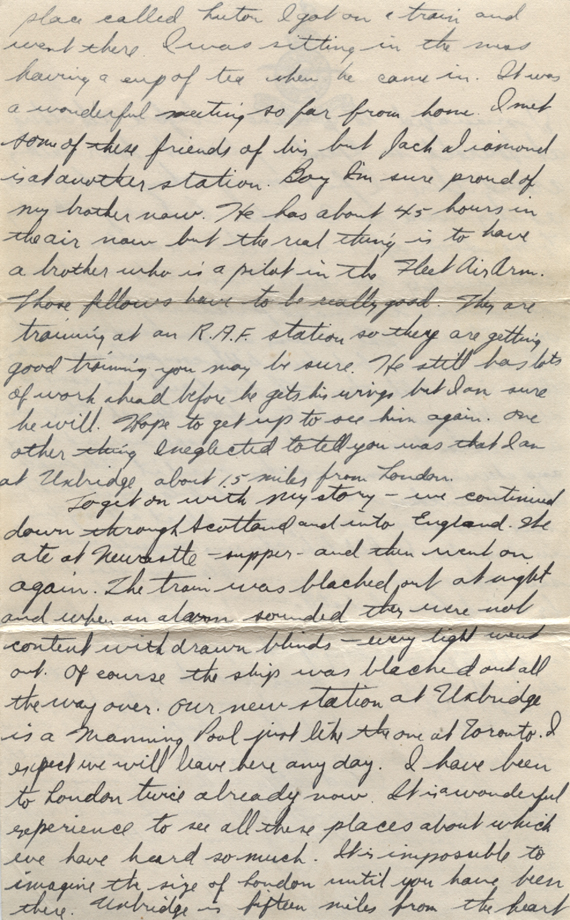 place called Luton I got on a train and
went there I was sitting in the mess
having a cup of tea when he came in. It was
a wonderful meeting so far from home. I met
some of these friends of his but Jack Diamond
is at another station. Boy I'm sure proud of
my brother now. He has about 45 hours in
the air now but the real thing is to have
a brother who is a pilot in the Fleet Air Arm.
Those fellows have to be really good. They are
training at an R.A.F. station so they are getting
good training you may be sure. He still has lots
of work ahead before he gets his wings but I am sure
he will. Hope to get up to see him again. One
other thing I neglected to tell you was that I am
at Uxbridge about 15 miles from London.
To get on with my story - we continued
down through Scotland and into England. We
ate at Newcastle - supper - and then went on
again. The train was blacked out at night
and when an alarm sounded they were not
content with drawn blinds - every light went
out. Of course the ship was blacked out all
the way over. Our new station at Uxbridge
is a Manning Pool just like the one at Toronto. I
expect we will leave here any day. I have been
to London twice already now. It is a wonderful
experience to see all these places about which
we have heard so much. It is impossible to
imagine the size of London until you have been
there. Uxbridge is fifteen miles from the heart